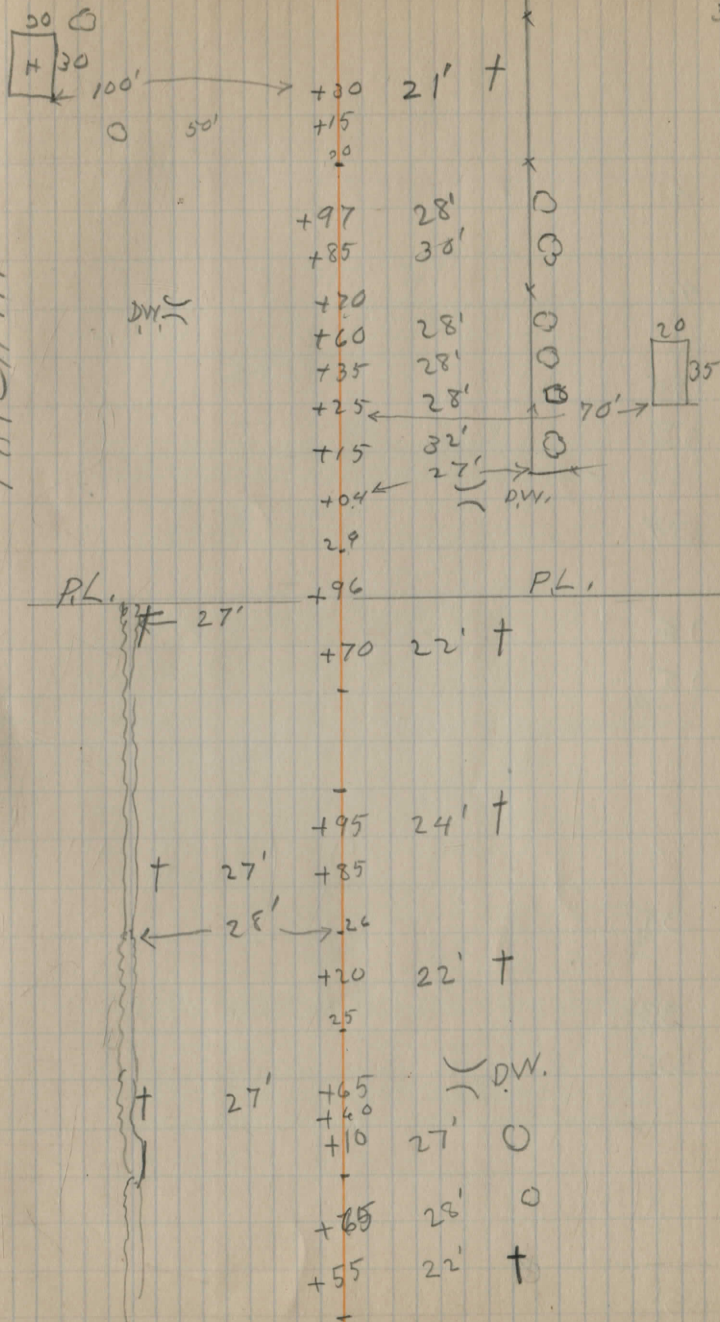 20
H 30
100' +30 21' †
50' +15
30
+97 28'
+85 30'
D.W. +70
+60 28'
20
+35 28' 35
+25 28' 70'
+15 32'
27'
+04 D.W.
29
P.L. +96 P.L.
27'
+70 22' †
+95 24' †
† 27' +85
28' 26
+20 22' †
25
D.W.
† 27' +65
+40
+10 27'
28'
+55 22' †